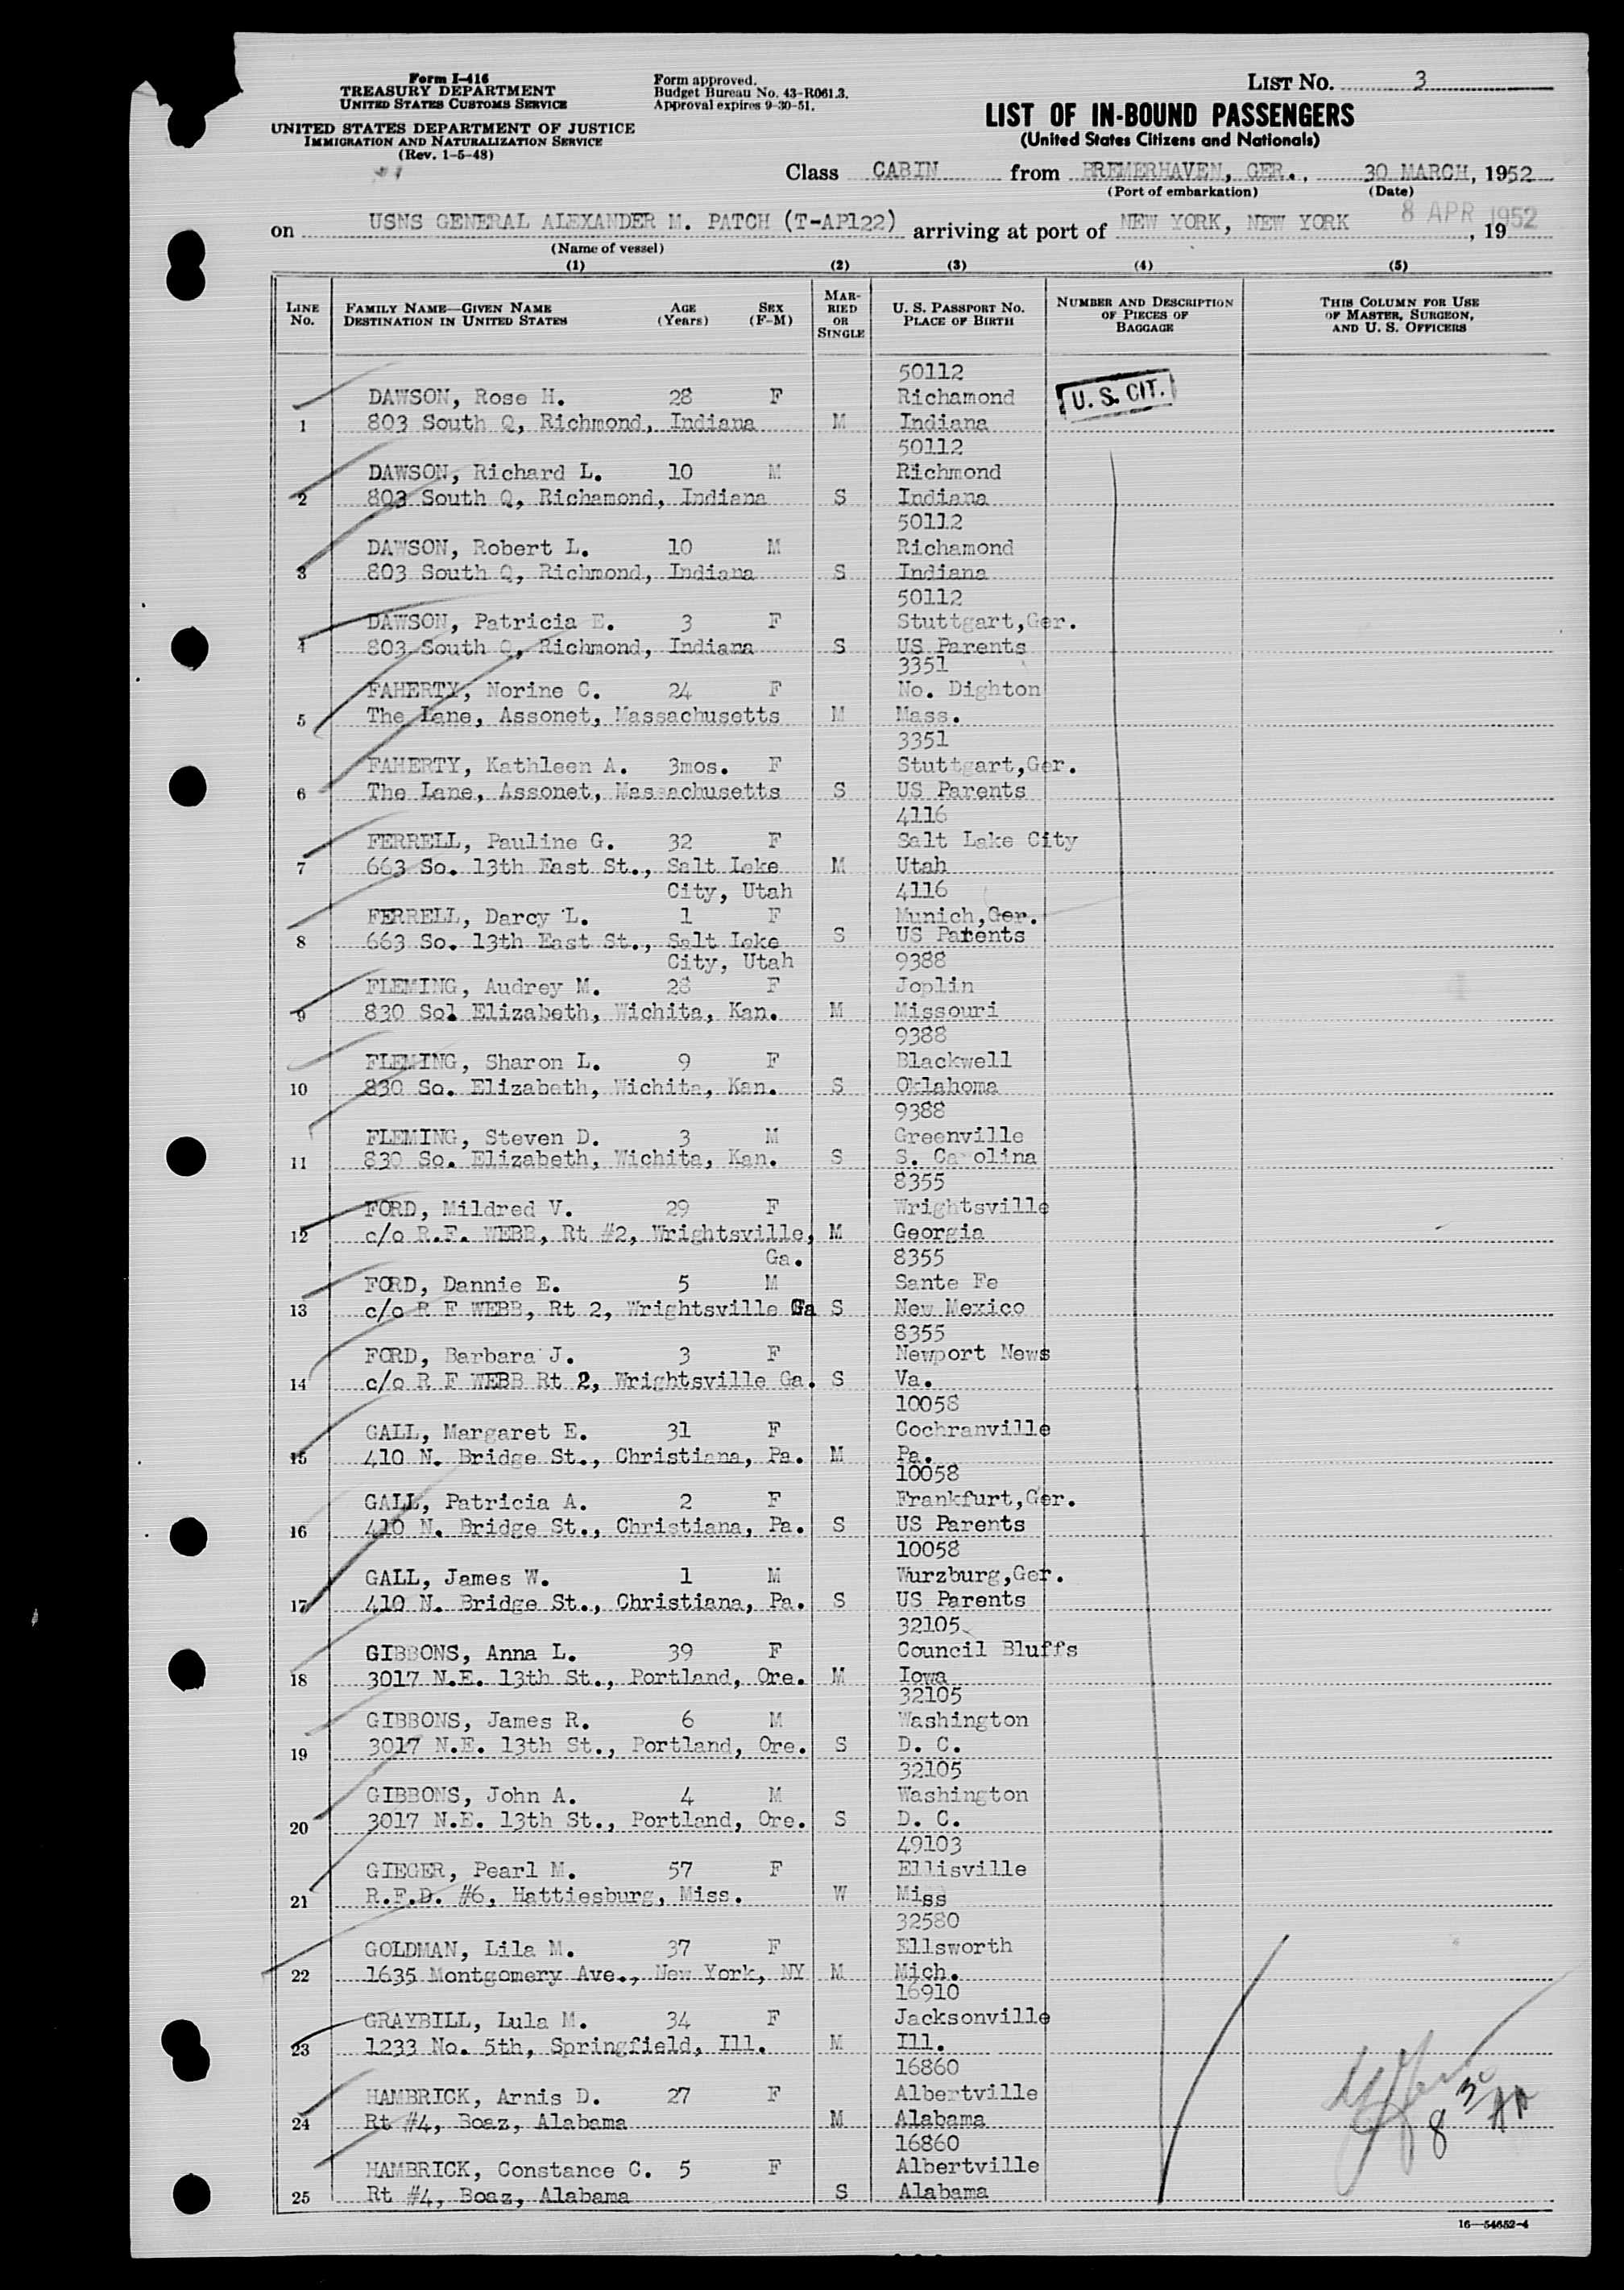 Form I-416
TREASURY DEPARTMENT
UNITED STATES CUSTOMS SERVICE
UNITED STATES DEPARTMENT OF JUSTICE
IMMIGRATION AND NATURALIZATION SERVICE
(Rev. 1-5-48)
Form approved.
Budget Bureau No. 43-R061.3.
Approval expires 9-30-51.
LIST NO. 3
LIST OF IN-BOUND PASSENGERS
(United States Citizens and Nationals)
Class CABIN from BREMERHAVEN, GER., 30 MARCH, 1952
(Port of embarkation) (Date)
on USNS GENERAL ALEXANDER M. PATCH (T-AP122) arriving at port of NEW YORK, NEW YORK 8 APR 1952, 19
(Name of vessel)
(1) (2) (3) (4) (5)
LINE NO.
FAMILY NAME—GIVEN NAME
DESTINATION IN UNITED STATES
AGE (Years)
SEX (F-M)
MARRIED OR SINGLE
U. S. PASSPORT NO.
PLACE OF BIRTH
NUMBER AND DESCRIPTION OF PIECES OF BAGGAGE
THIS COLUMN FOR USE OF MASTER, SURGEON, AND U. S. OFFICERS
50112
DAWSON, Rose H. 28 F Richamond
1 803 South Q, Richmond, Indiana M Indiana
U. S. CIT.
50112
DAWSON, Richard L. 10 M Richmond
2 803 South Q, Richamond, Indiana S Indiana
50112
DAWSON, Robert L. 10 M Richamond
3 803 South Q, Richmond, Indiana S Indiana
50112
DAWSON, Patricia E. 3 F Stuttgart,Ger.
4 803 South Q, Richmond, Indiana S US Parents
3351
FAHERTY, Norine C. 24 F No. Dighton
5 The Lane, Assonet, Massachusetts M Mass.
3351
FAHERTY, Kathleen A. 3mos. F Stuttgart,Ger.
6 The Lane, Assonet, Massachusetts S US Parents
4116
FERRELL, Pauline G. 32 F Salt Lake City
7 663 So. 13th East St., Salt Lake M Utah
City, Utah 4116
FERRELL, Darcy L. 1 F Munich,Ger.
8 663 So. 13th East St., Salt Lake S US Parents
City, Utah 9388
FLEMING, Audrey M. 28 F Joplin
9 830 Sol Elizabeth, Wichita, Kan. M Missouri
9388
FLEMING, Sharon L. 9 F Blackwell
10 830 So. Elizabeth, Wichita, Kan. S Oklahoma
9388
FLEMING, Steven D. 3 M Greenville
11 830 So. Elizabeth, Wichita, Kan. S S. Carolina
8355
FORD, Mildred V. 29 F Wrightsville
12 c/o R.F. WEBB, Rt #2, Wrightsville, M Georgia
Ga. 8355
FORD, Dannie E. 5 M Sante Fe
13 c/o R F WEBB, Rt 2, Wrightsville Ga S New Mexico
8355
FORD, Barbara J. 3 F Newport News
14 c/o R F WEBB Rt 2, Wrightsville Ga. S Va.
10058
GALL, Margaret E. 31 F Cochranville
15 410 N. Bridge St., Christiana, Pa. M Pa.
10058
GALL, Patricia A. 2 F Frankfurt,Ger.
16 410 N. Bridge St., Christiana, Pa. S US Parents
10058
GALL, James W. 1 M Wurzburg,Ger.
17 410 N. Bridge St., Christiana, Pa. S US Parents
32105
GIBBONS, Anna L. 39 F Council Bluffs
18 3017 N.E. 13th St., Portland, Ore. M Iowa
32105
GIBBONS, James R. 6 M Washington
19 3017 N.E. 13th St., Portland, Ore. S D. C.
32105
GIBBONS, John A. 4 M Washington
20 3017 N.E. 13th St., Portland, Ore. S D. C.
49103
GIEGER, Pearl M. 57 F Ellisville
21 R.F.D. #6, Hattiesburg, Miss. W Miss
32580
GOLDMAN, Lila M. 37 F Ellsworth
22 1635 Montgomery Ave., New York, NY M Mich.
16910
GRAYBILL, Lula M. 34 F Jacksonville
23 1233 No. 5th, Springfield, Ill. M Ill.
16860
HAMBRICK, Arnis D. 27 F Albertville
24 Rt #4, Boaz, Alabama M Alabama
16860
HAMBRICK, Constance C. 5 F Albertville
25 Rt #4, Boaz, Alabama S Alabama
16—54652-4